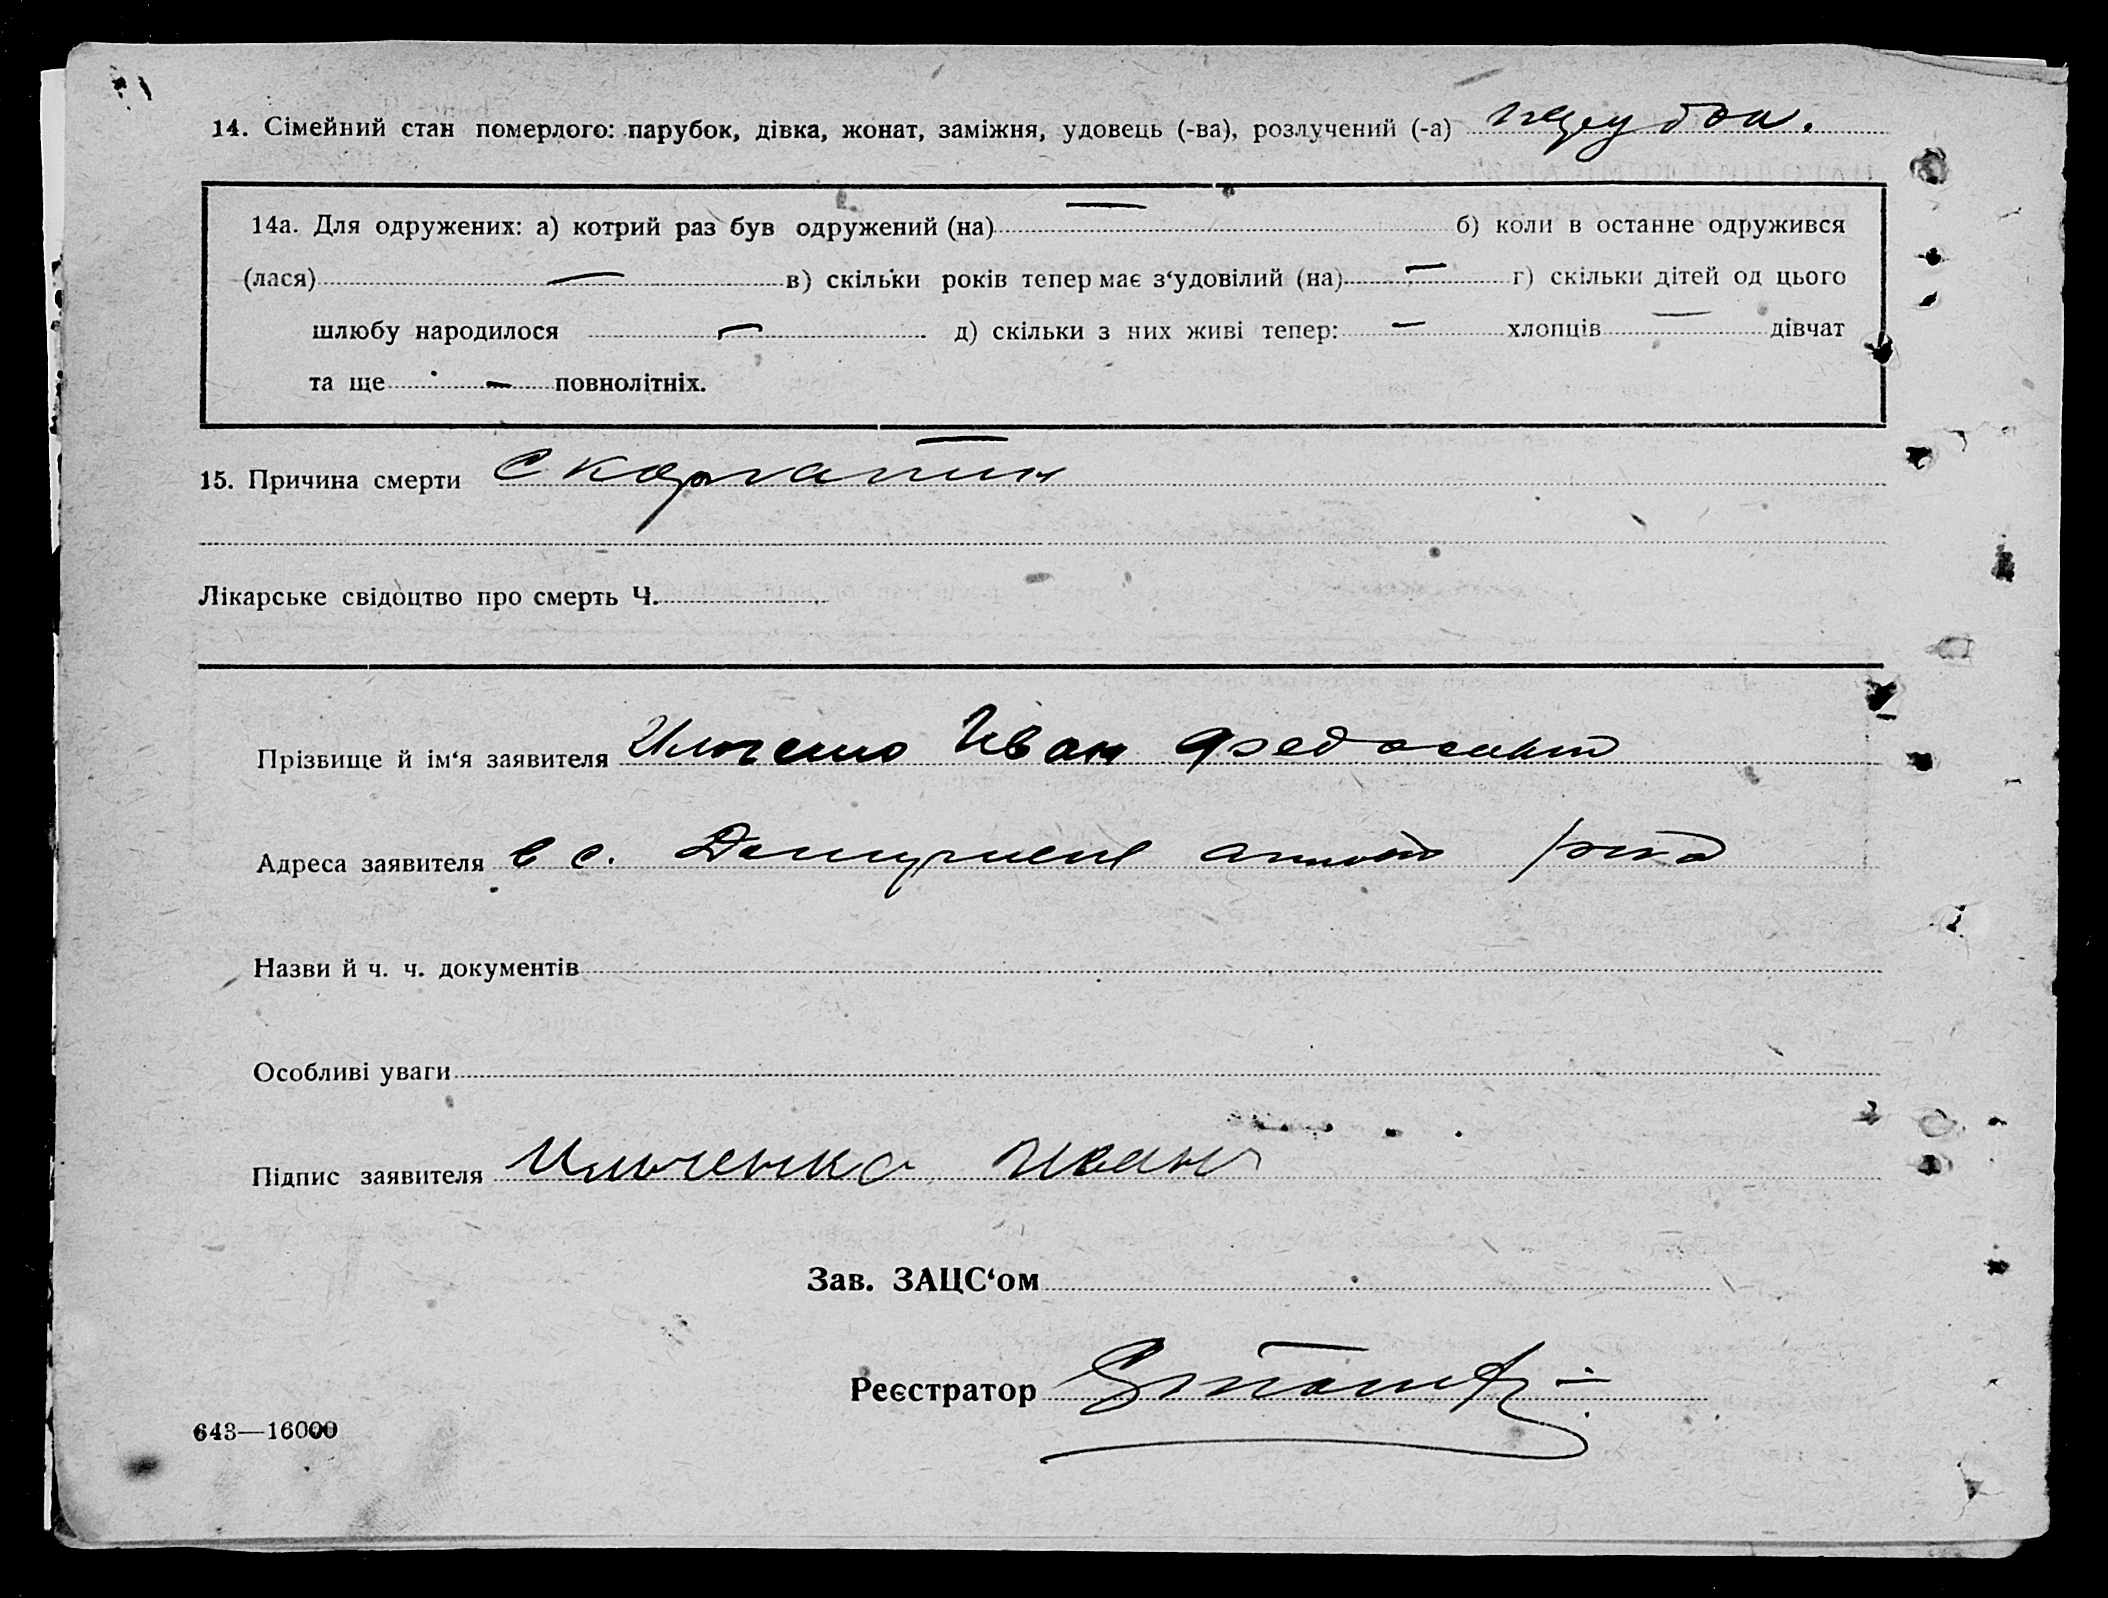 14. Сімейний стан померлого: парубок, дівка, жонат, заміжня, удовець (-ва), розлучений (-а) парубок.
14а. Для одружених: а) котрий раз був одружений (на) — б) коли в останне одружився
(лася) — в) скільки років тепер має з‘удовілий (на) — г) скільки дітей од цього
шлюбу народилося — д) скільки з них живі тепер: — хлопців — дівчат
та ще — повнолітніх.
15. Причина смерти Скарлатин
Лікарське свідоцтво про смерть Ч.
Прізвище й ім‘я заявителя Ильченко Иван
Адреса заявителя в с.
Назви й ч. ч. документів
Особливі уваги
Підпис заявителя Ильченко Иван
Зав. ЗАЦС‘ом
Реєстратор
643—16000